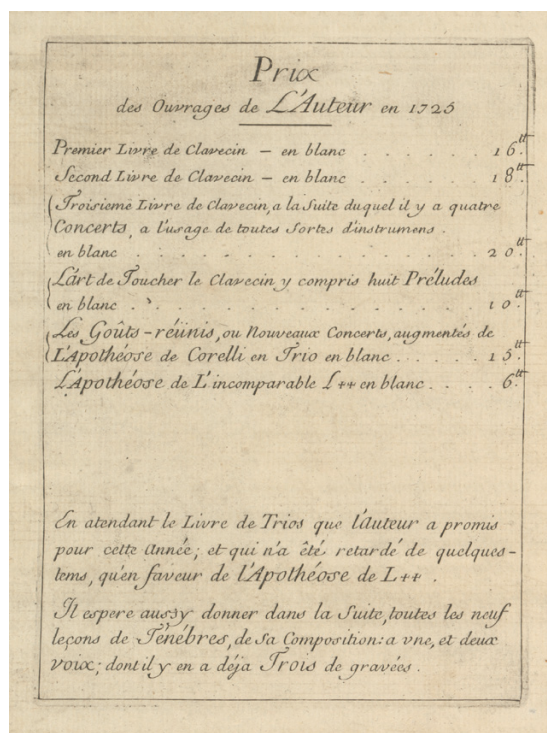 Prix
des Ouvrages de L'Auteur en 1725
Premier Livre de Clavecin – en blanc . . . . . . 16.tt
Second Livre de Clavecin – en blanc . . . . . . 18.tt
Troisieme Livre de Clavecin, a la Suite duquel il y a quatre
Concerts, a l'usage de toutes Sortes d'instrumens .
en blanc . . . . . . . . . . . . . . . 20.tt
L'art de Toucher le Clavecin y compris huit Préludes
en blanc . . . . . . . . . . . . . . . 10.tt
Les Goûts-réünis, ou Nouveaux Concerts, augmentés de
L'Apothéose de Corelli en Trio en blanc . . . . . 15.tt
L'Apothéose de L'incomparable L++ en blanc . . . . 6.tt
En atendant le Livre de Trios que l'auteur a promis
pour cette année; et qui n'a êté retardé de quelques-
tems, qu'en faveur de l'Apothéose de L++ .
Il espere aussy donner dans la Suite, toutes les neuf
leçons de Ténébres, de Sa Composition: a vne, et deux
voix; dont il y en a déja Trois de gravées .